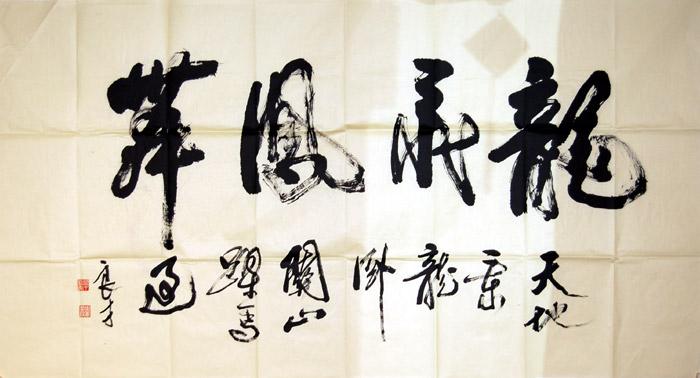 龍飛鳳舞
天地龍卧關山馬過
良才